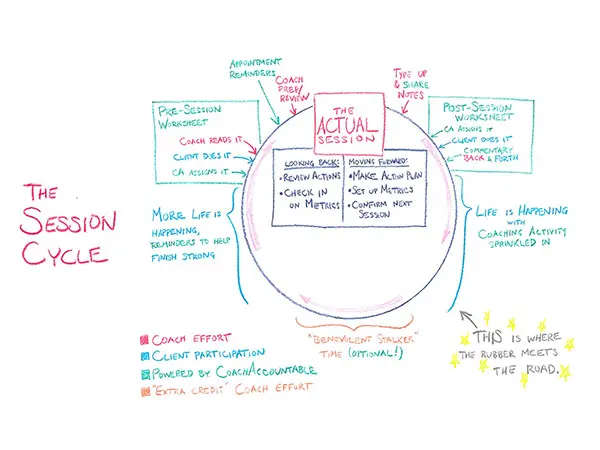 THE
SESSION
CYCLE
APPOINTMENT
REMINDERS
COACH
PREP/
REVIEW
TYPE UP
& SHARE
NOTES
THE
ACTUAL
SESSION
PRE-SESSION
WORKSHEET
COACH READS IT
CLIENT DOES IT
CA ASSIGNS IT
POST-SESSION
WORKSHEET
CA ASSIGNS IT
CLIENT DOES IT
COMMENTARY
BACK & FORTH
LOOKING BACK:
• REVIEW ACTIONS
• CHECK IN
ON METRICS
MOVING FORWARD:
• MAKE ACTION PLAN
• SET UP METRICS
• CONFIRM NEXT
SESSION
MORE LIFE IS
HAPPENING,
REMINDERS TO HELP
FINISH STRONG
LIFE IS HAPPENING
WITH
COACHING ACTIVITY
SPRINKLED IN
"BENEVOLENT STALKER"
TIME (OPTIONAL!)
THIS IS WHERE
THE RUBBER MEETS
THE ROAD.
COACH EFFORT
CLIENT PARTICIPATION
POWERED BY COACHACCOUNTABLE
"EXTRA CREDIT" COACH EFFORT